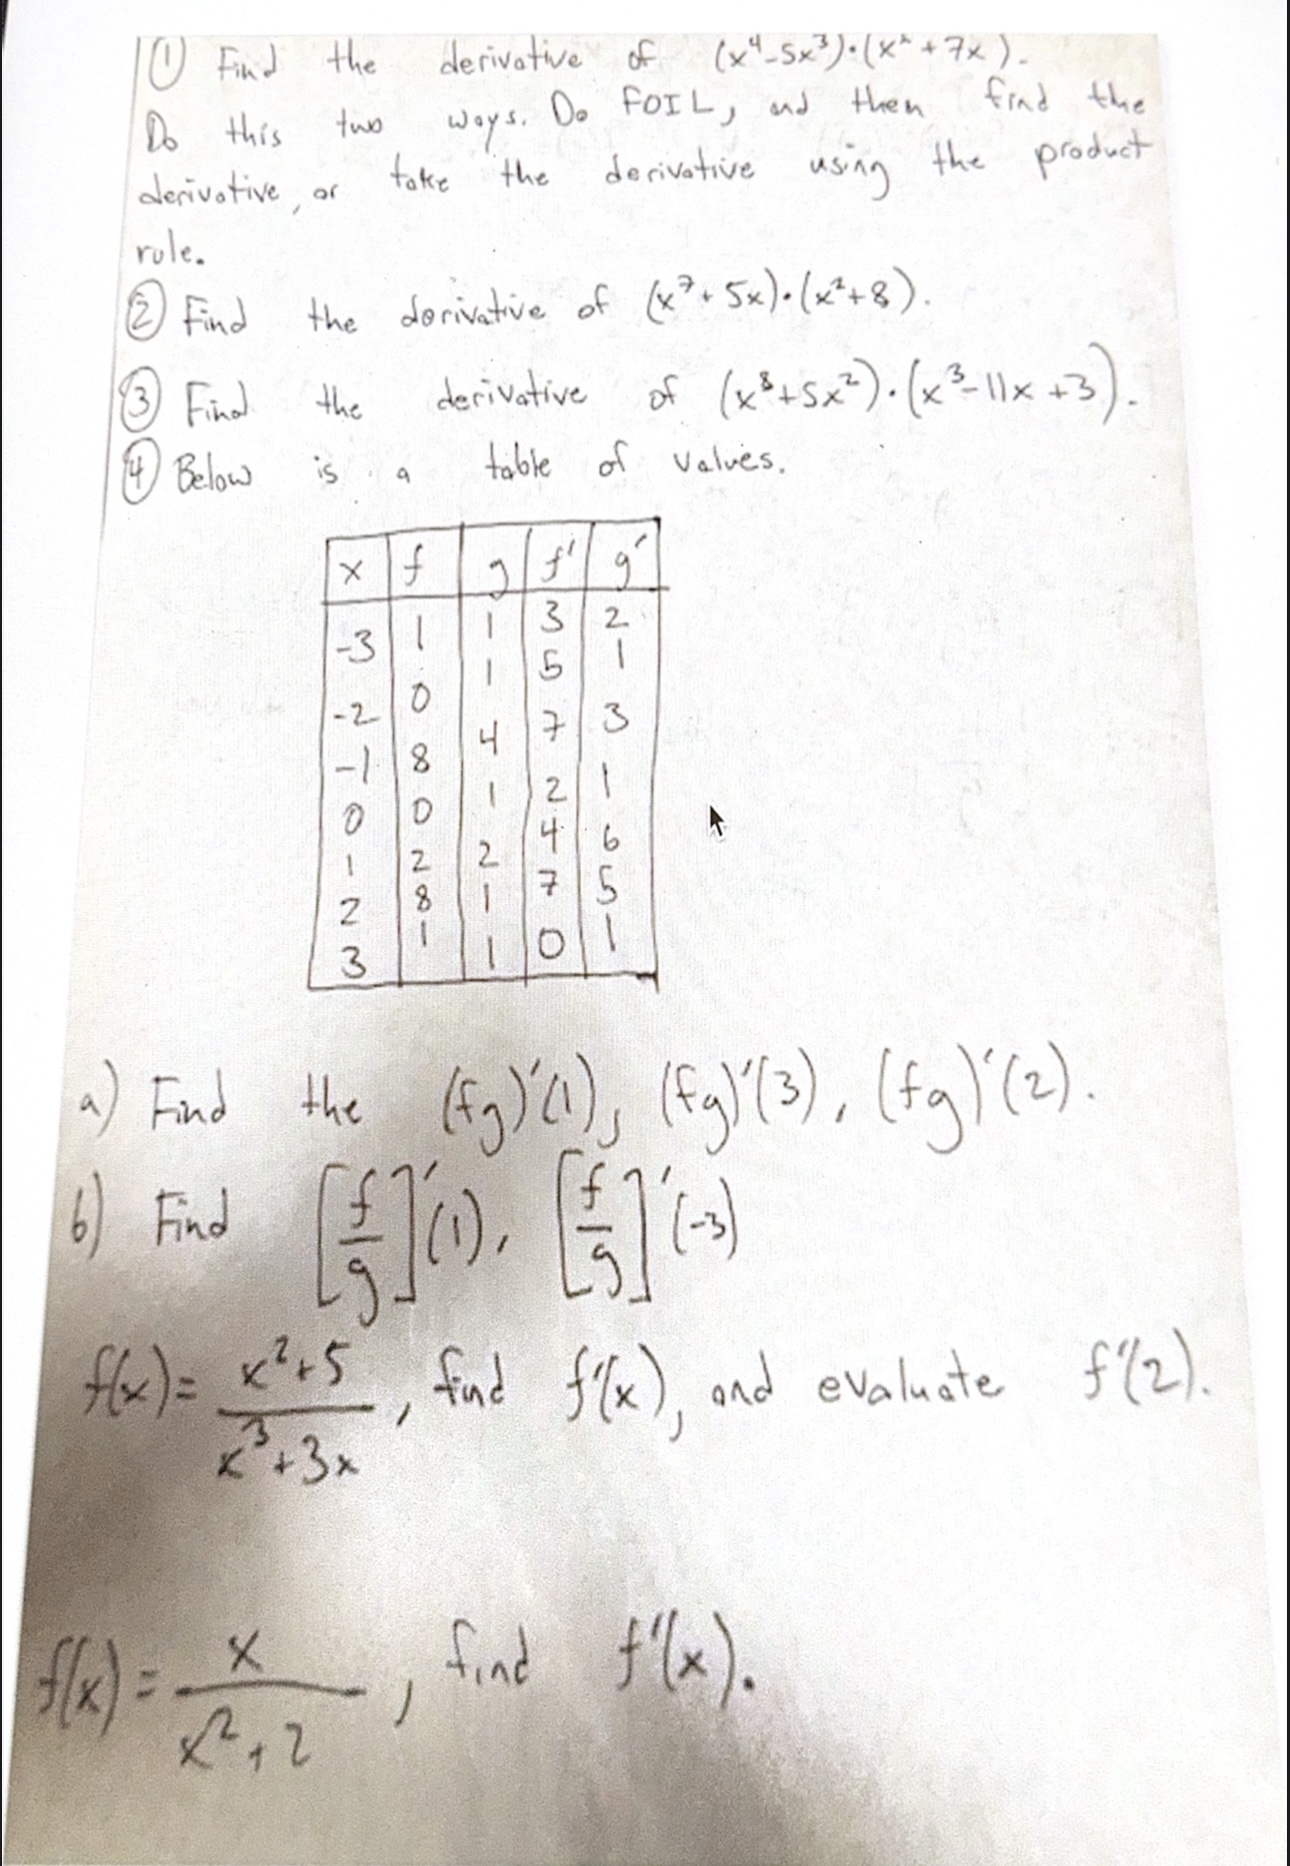 ① Find the derivative of (x⁴-5x³)·(x²+7x).
Do this two ways. Do FOIL, and then find the
derivative, or take the derivative using the product
rule.
② Find the derivative of (x⁷+5x)·(x²+8).
③ Find the derivative of (x⁸+5x²)·(x³-11x+3).
④ Below is a table of values.
x f g f' g'
-3 1 1 3 2
-2 0 1 5 1
-1 8 4 7 3
0 0 1 2 1
1 2 2 4 6
2 8 1 7 5
3 1 1 0 1
a) Find the (fg)'(1), (fg)'(3), (fg)'(2).
b) Find [f/g]'(1), [f/g]'(-3)
f(x)= x²+5/x³+3x, find f'(x), and evaluate f'(2).
f(x)= x/x²+2, find f'(x).